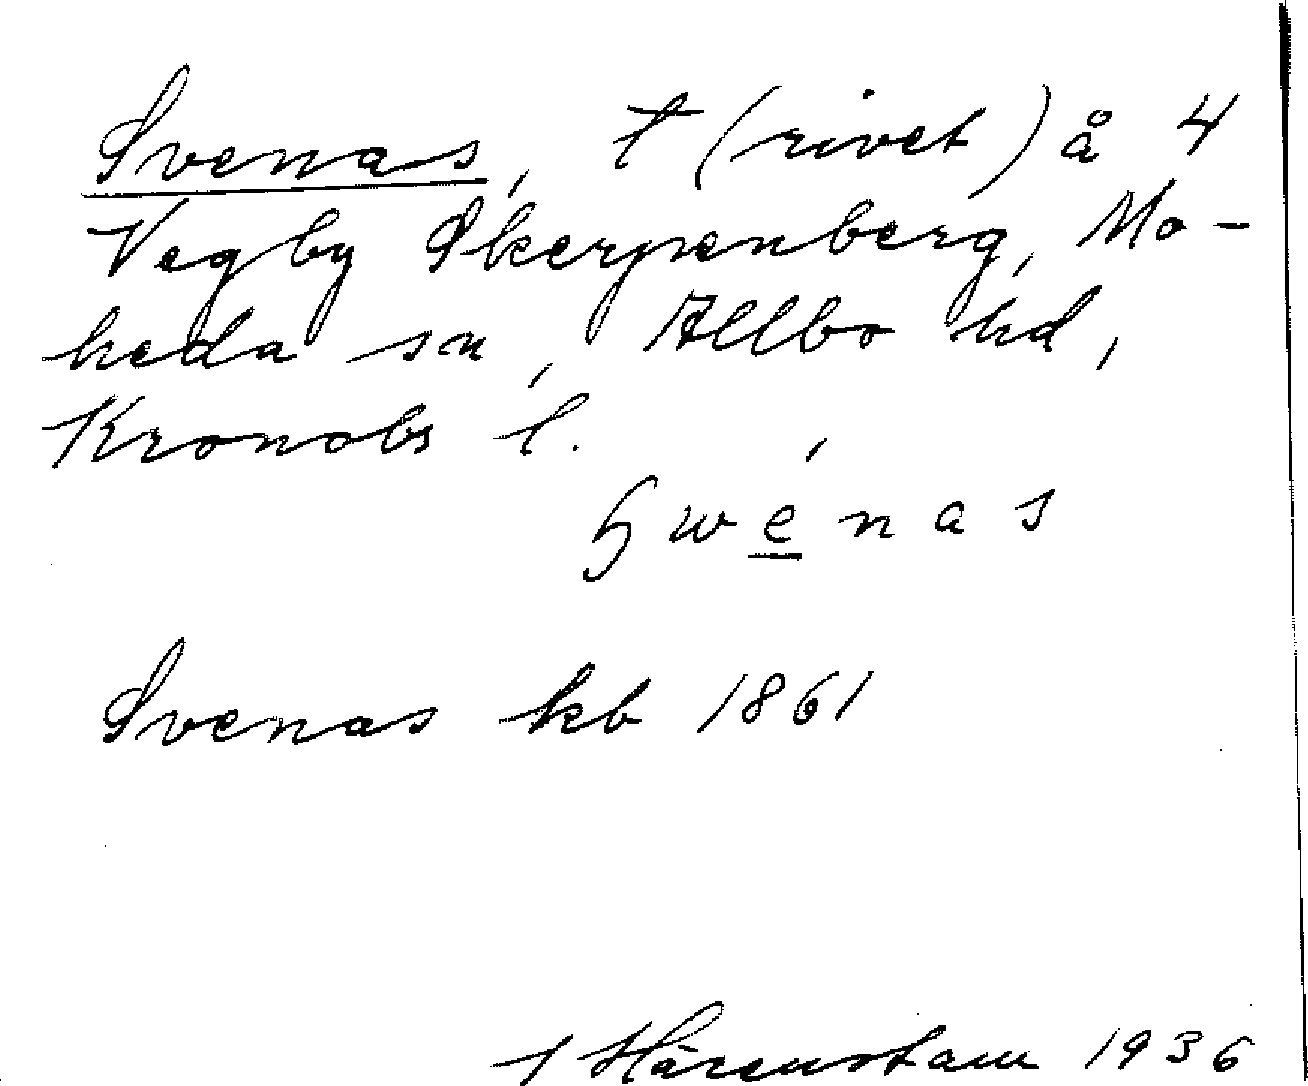 Svenas, t (rivet) å 4
Vegby Skerpenberg, Mo-
heda sn, Allbo hd,
Kronobs l.
swénas
Svenas kb 1861
I Härenstam 1936